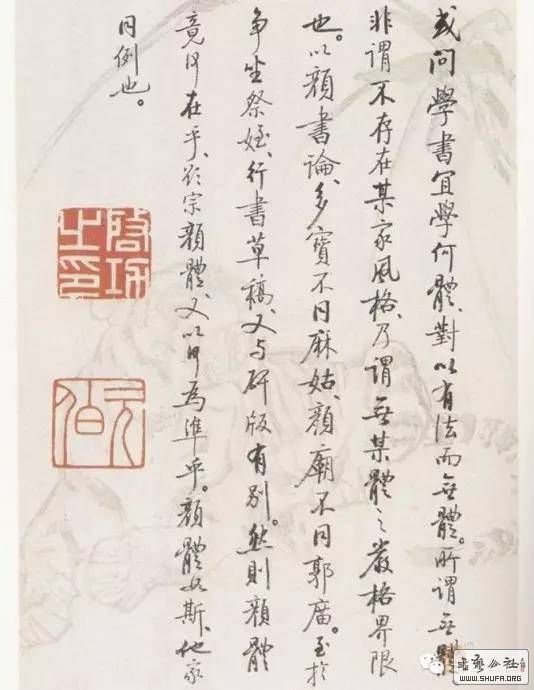 或問學書宜學何體、對以有法而無體。所謂無體
非謂不存在某家風格、乃謂無某體之嚴格界限
也。以顏書論、多寶不同麻姑、顏廟不同郭廣。至於
争坐祭姪、行書草稿、又与碑版有别。然則顏體
竟何在乎、欲宗顏體、又以何為準乎。顏體如斯、他家
同例也。
啓功之印
元白
書藝公社
www.SHUFA.ORG